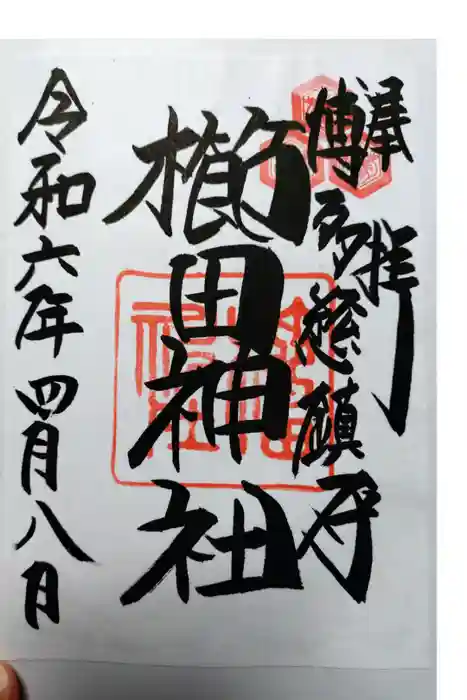 奉拝
博多総鎮守
櫛田神社
令和六年四月八日